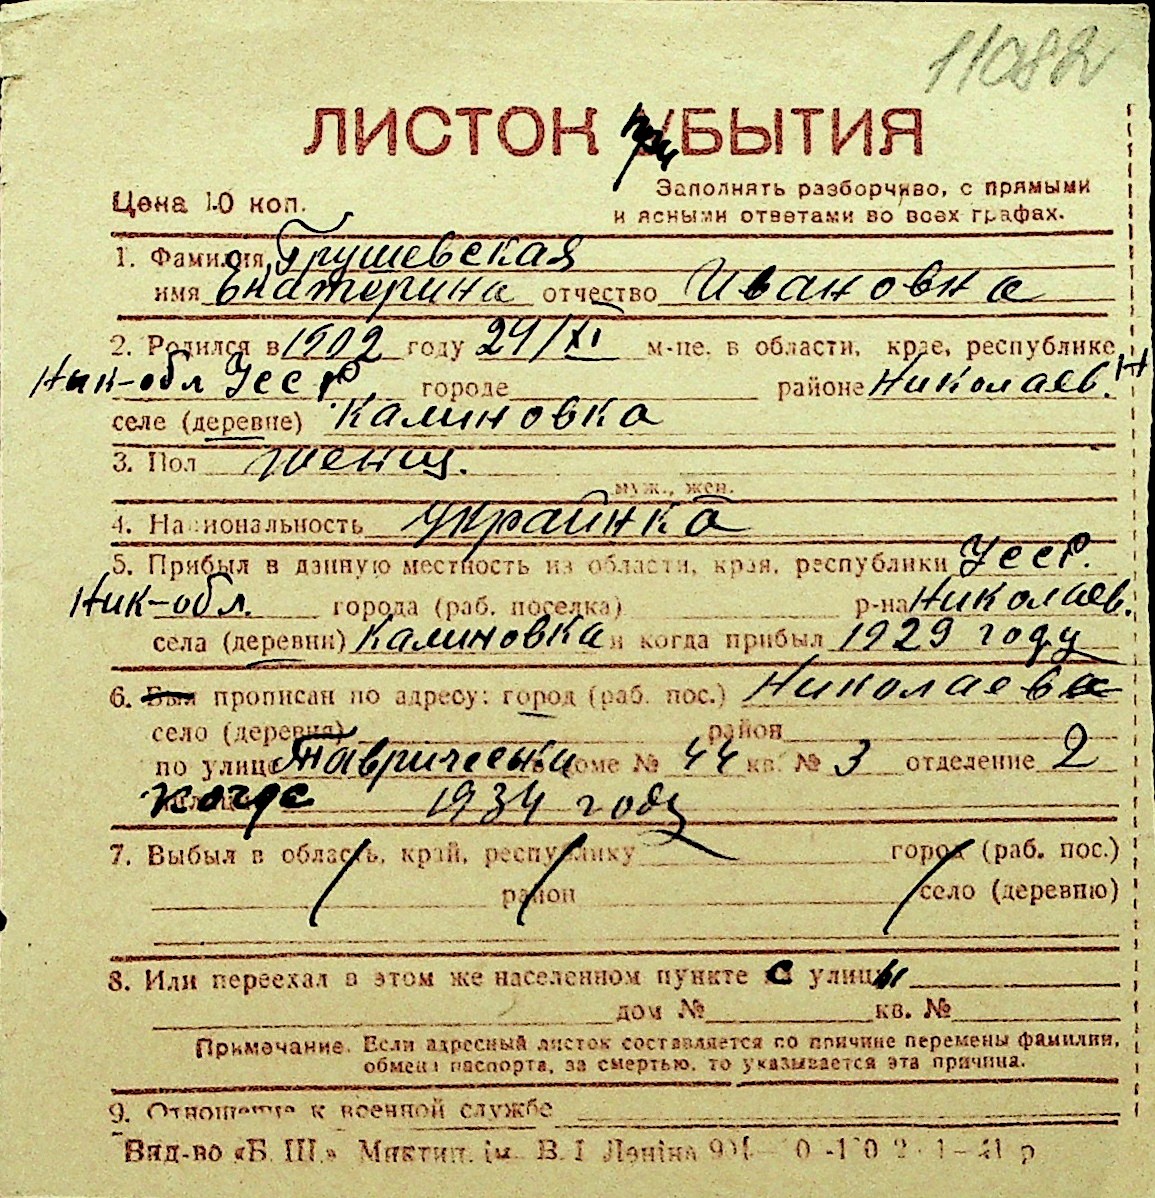 11082
ЛИСТОК прибытия
Цена 10 коп.
Заполнять разборчиво, с прямыми
и ясными ответами во всех графах.
1. Фамилия Грушевская
имя Екатерина отчество Ивановна
2. Родился в 1902 году 24/XI м-це, в области, крае, республике
Ник-обл УССР городе районе Николаев.
селе (деревне) Калиновка
3. Пол женщ.
муж., жен.
4. Национальность украинка
5. Прибыл в данную местность из области, края, республики УССР.
Ник-обл. города (раб. поселка) р-на Николаев.
села (деревни) Калиновка и когда прибыл 1929 году
6. Был прописан по адресу: город (раб. пос.) Николаев
село (деревня) район
по улице Таврически в доме № 44 кв. № 3 отделение 2
когда 1934 году
7. Выбыл в область, край, республику город (раб. пос.)
район село (деревню)
8. Или переехал в этом же населенном пункте с улицы
дом № кв. №
Примечание. Если адресный листок составляется по причине перемены фамилии,
обмена паспорта, за смертью, то указывается эта причина.
9. Отношение к военной службе
Вид-во «Б. Ш.» Миктип. ім. В. І Леніна